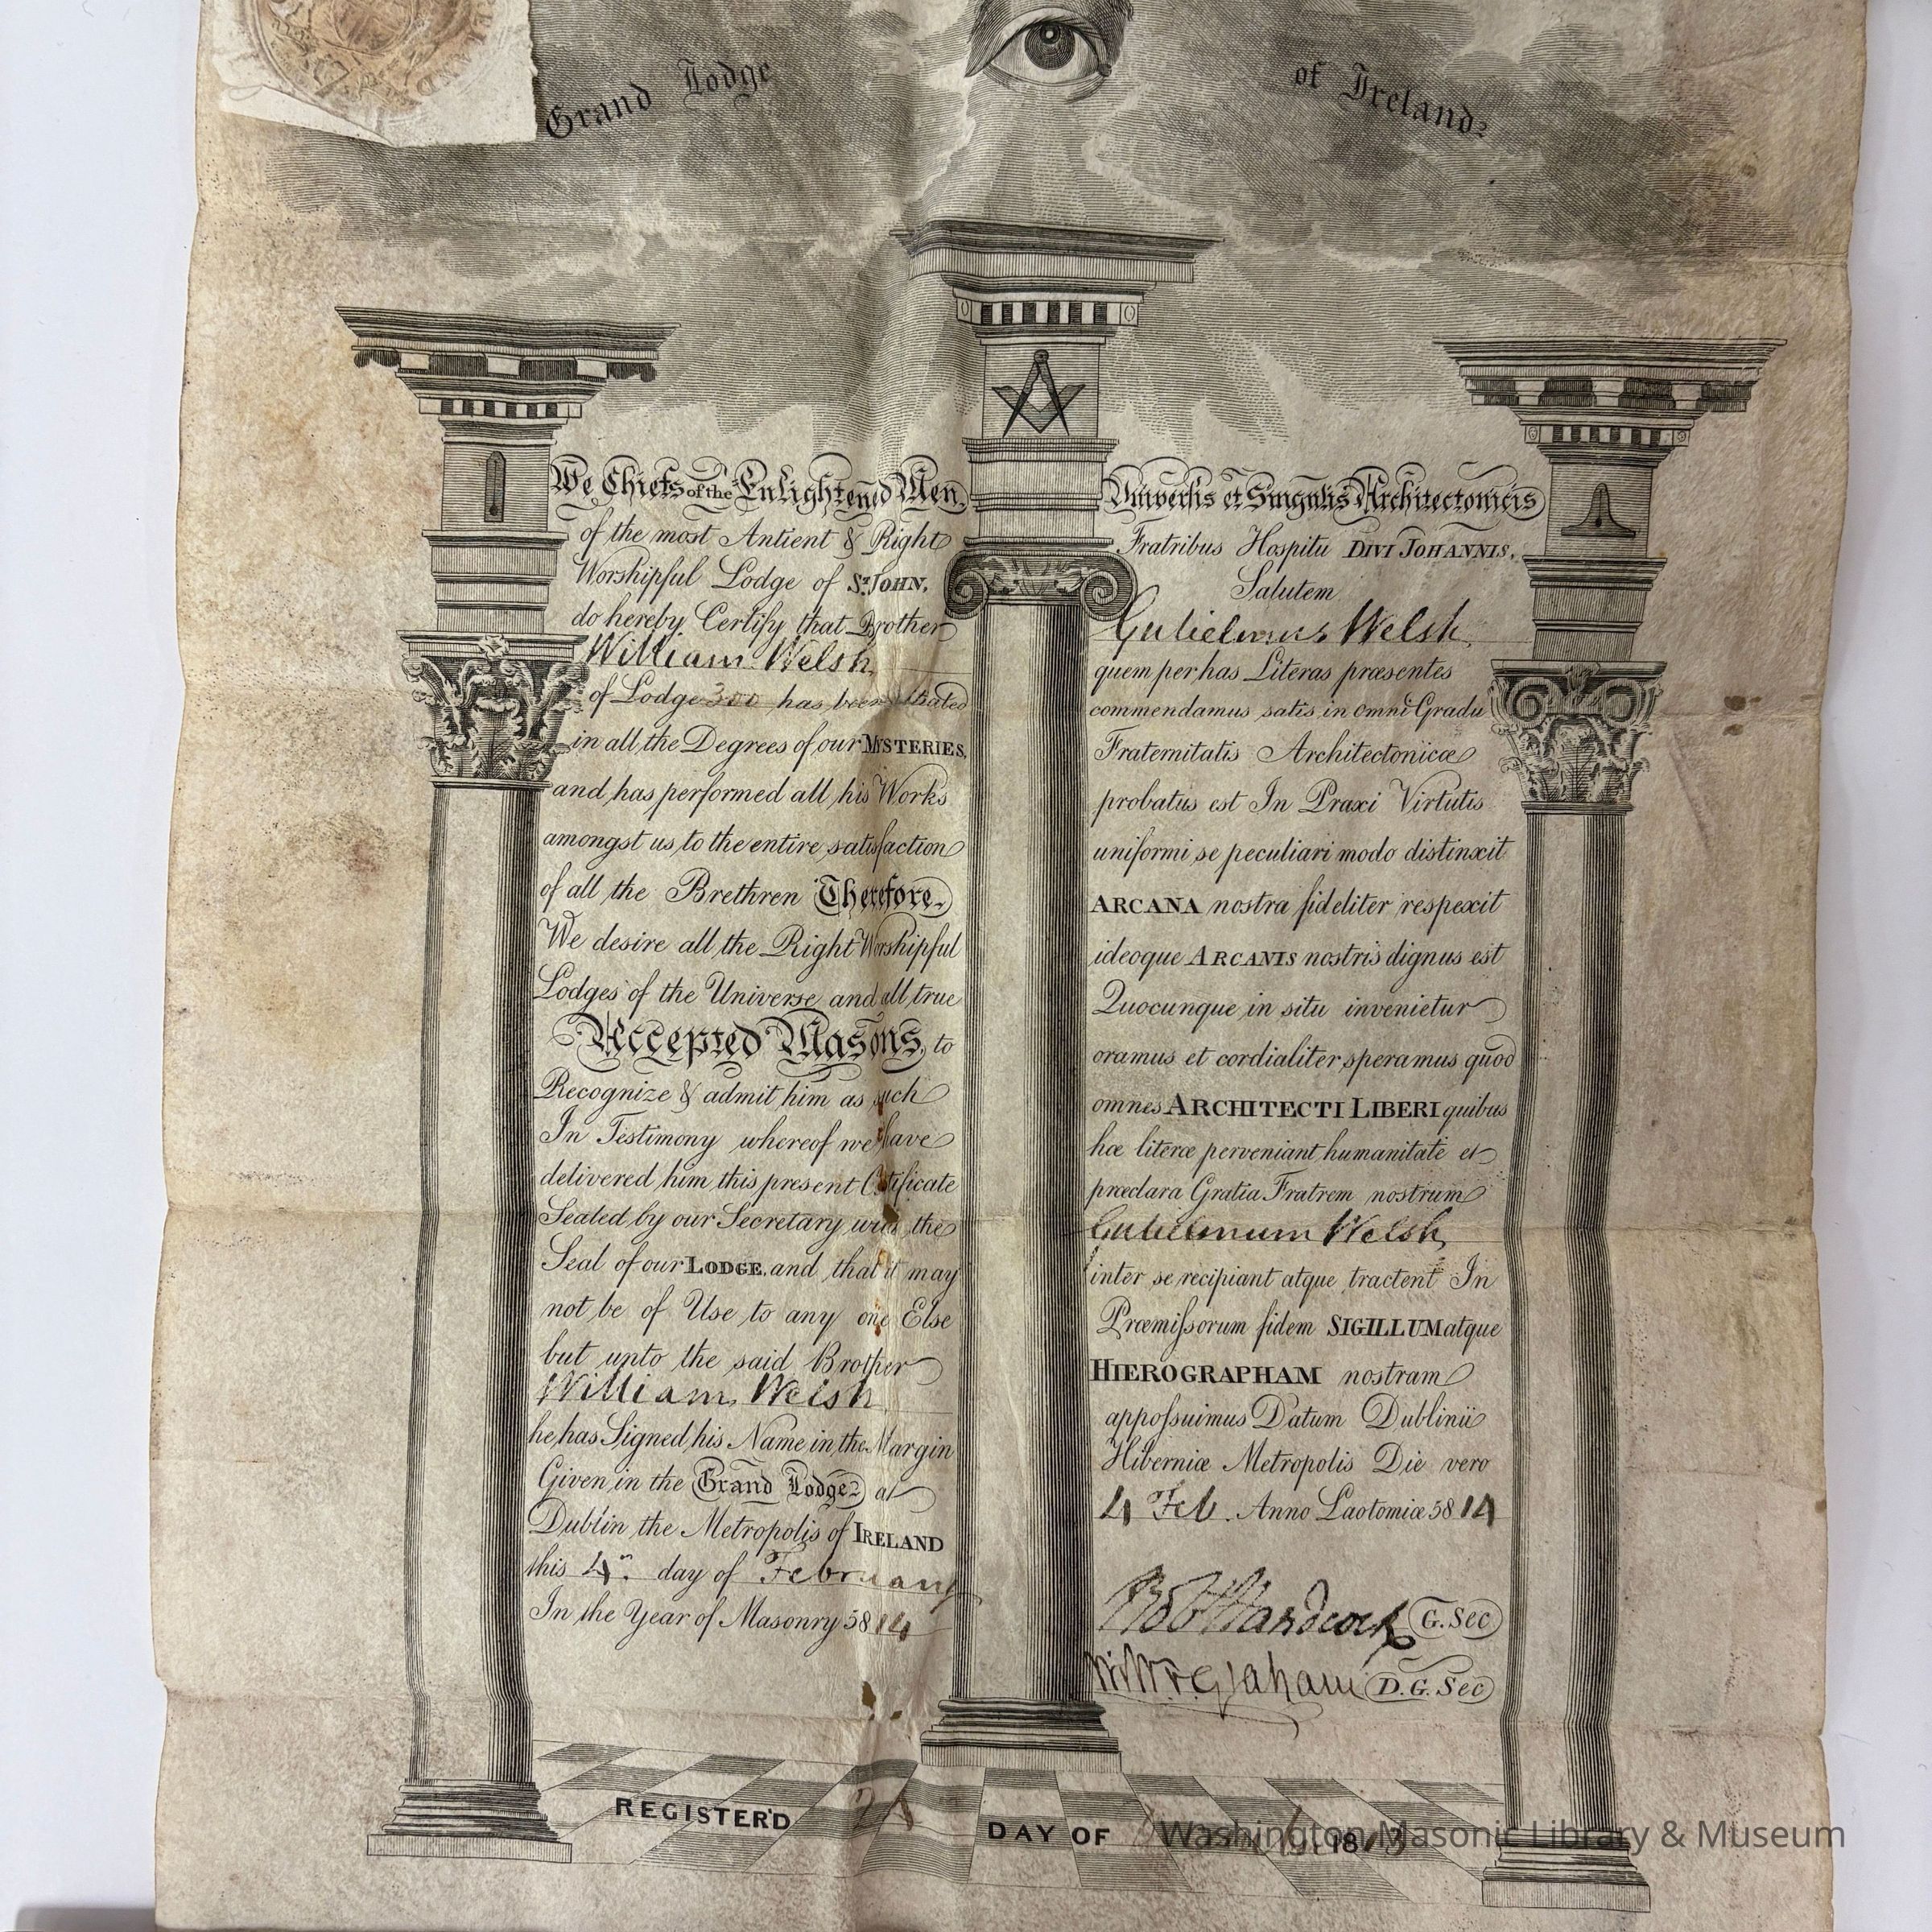 Grand Lodge of Ireland
We Chiefs of the Enlightened Men,
of the most Antient & Right
Worshipful Lodge of St. JOHN,
do hereby Certify that Brother
William Welsh
of Lodge 300 has been
in all the Degrees of our MYSTERIES,
and has performed all his Works
amongst us to the entire satisfaction
of all the Brethren Therefore
We desire all the Right Worshipful
Lodges of the Universe and all true
Accepted Masons, to
Recognize & admit him as such
In Testimony whereof we have
delivered him this present Certificate
Sealed by our Secretary with the
Seal of our LODGE, and that it may
not be of Use to any one Else
but unto the said Brother
William Welsh
he has Signed his Name in the Margin
Given in the Grand Lodge at
Dublin the Metropolis of IRELAND
this 4th day of February
In the Year of Masonry 5814
Universis et Singulis Architectonicis
Fratribus Hospitii DIVI JOHANNIS,
Salutem
Gulielmus Welsh
quem per has Literas præsentes
commendamus satis in omni Gradu
Fraternitatis Architectonicæ
probatus est In Praxi Virtutis
uniformi se peculiari modo distinxit
ARCANA nostra fideliter respexit
ideoque ARCANIS nostris dignus est
Quocunque in situ invenietur
oramus et cordialiter speramus quod
omnes ARCHITECTI LIBERI quibus
hæ literæ perveniant humanitate et
præclara Gratia Fratrem nostrum
Gulielmum Welsh
inter se recipiant atque tractent In
Præmissorum fidem SIGILLUM atque
HIEROGRAPHAM nostram
appossuimus Datum Dublinii
Hiberniæ Metropolis Die vero
4 Feb. Anno Laotomiæ 5814
Handcock G. Sec
Graham D. G. Sec
REGISTER'D DAY OF 1813
Washington Masonic Library & Museum